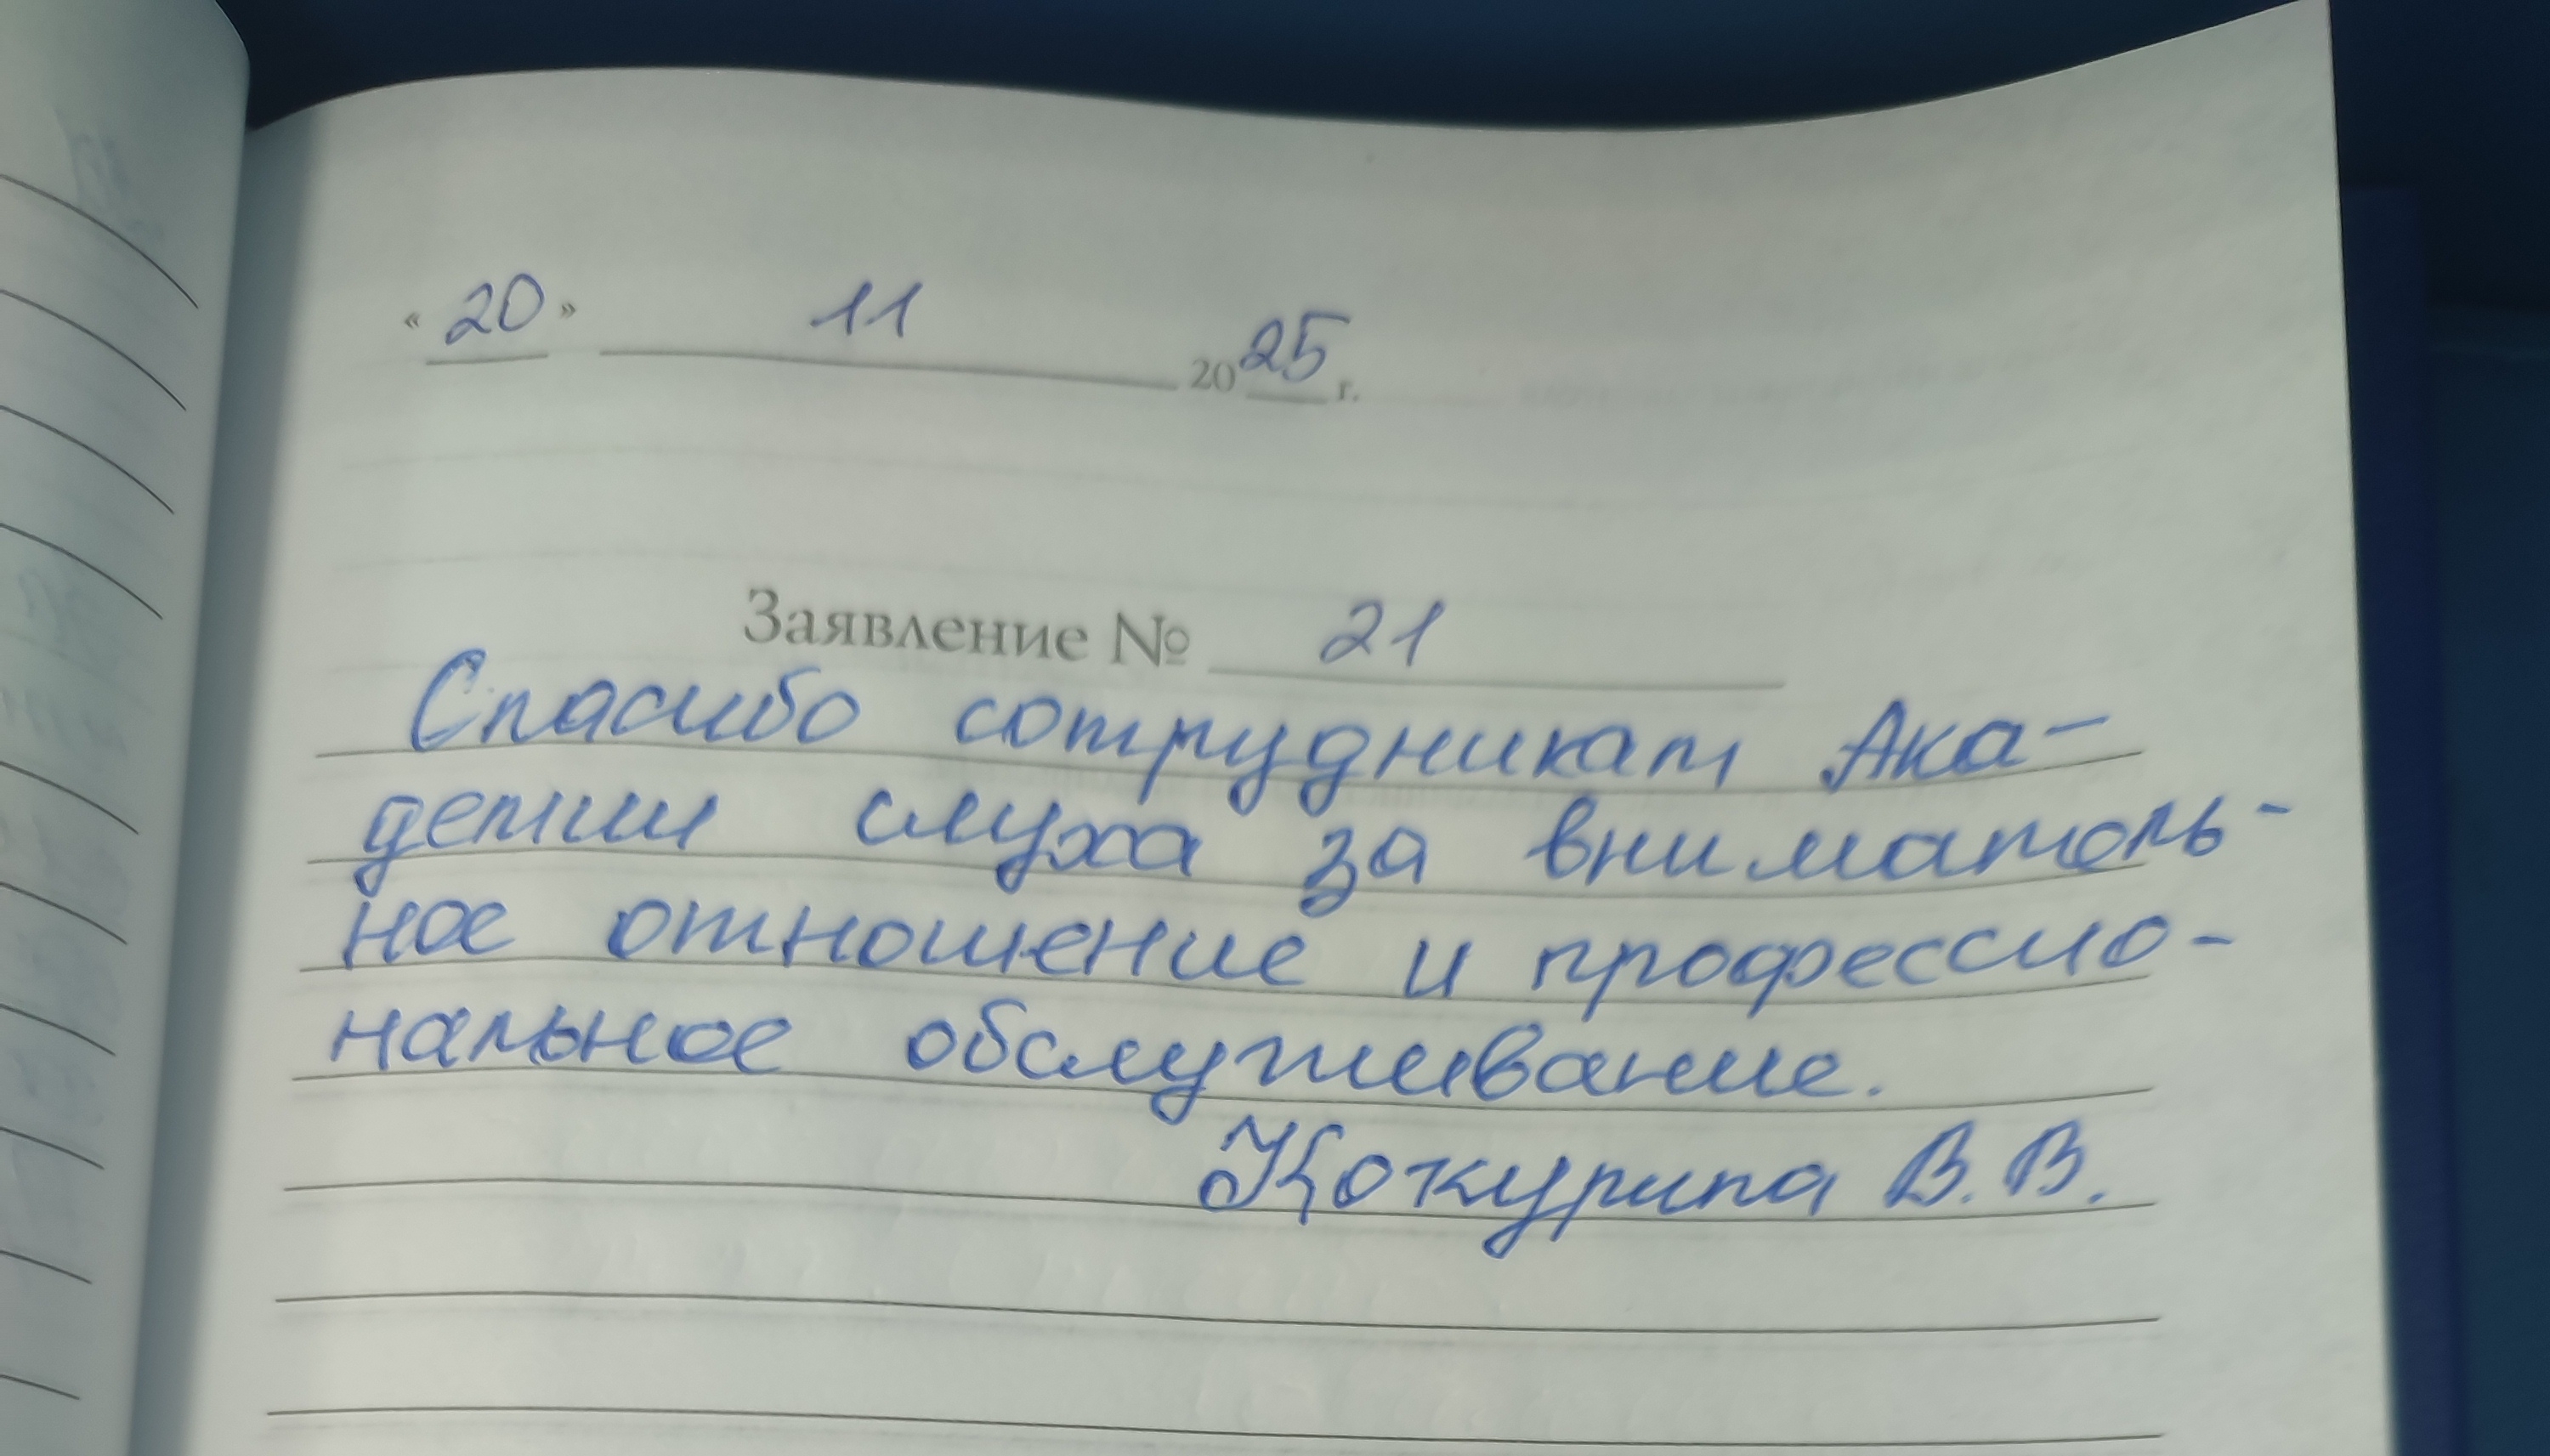 « 20 » 11 2025 г.
Заявление № 21
Спасибо сотрудникам Ака-
демии слуха за вниматель-
ное отношение и профессио-
нальное обслуживание.
Кокурина В.В.